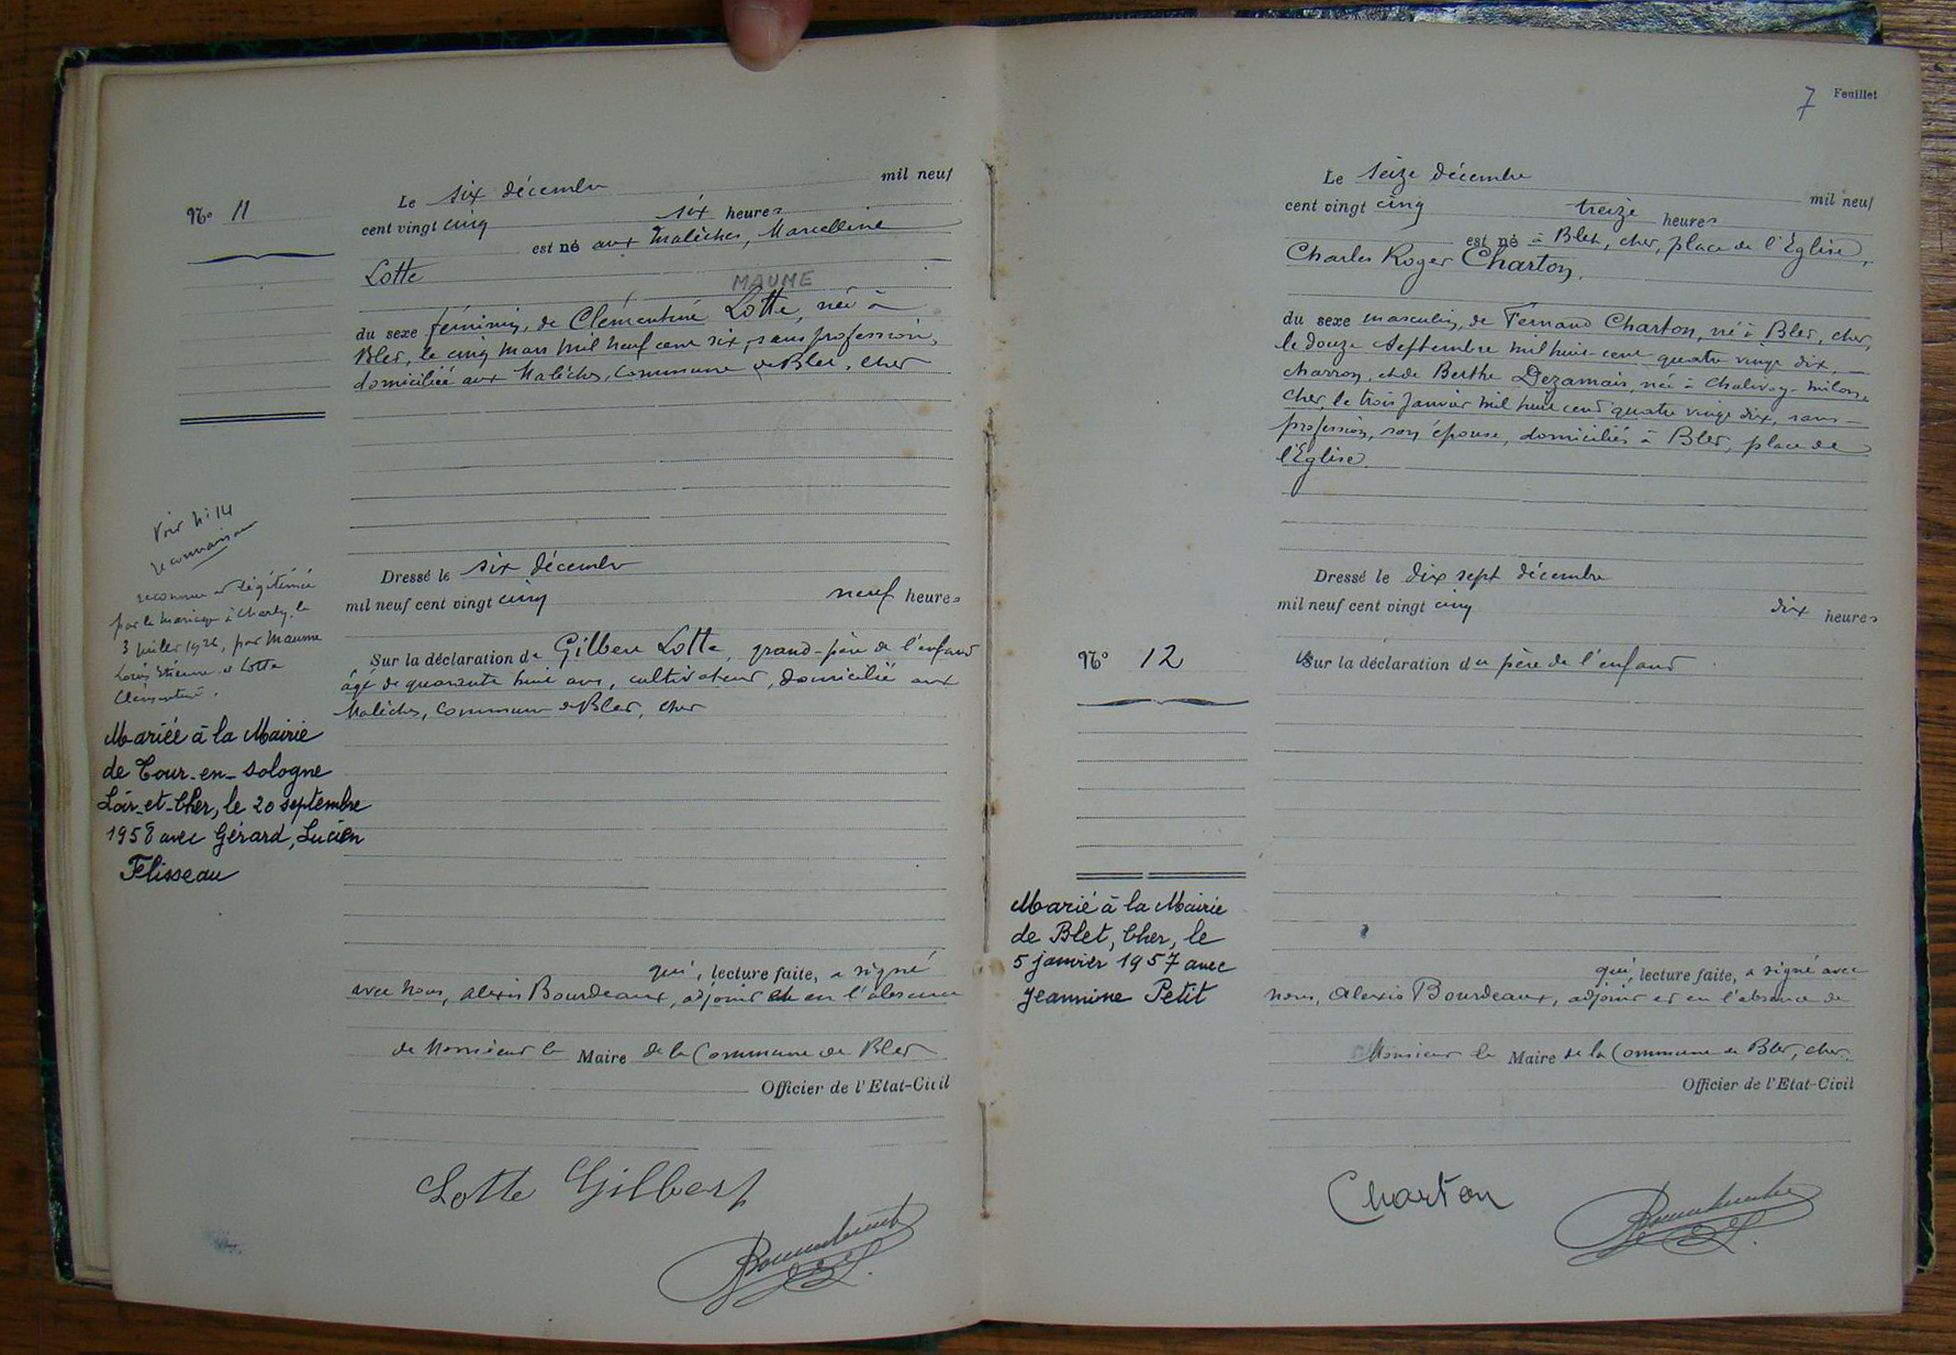 Nº 11
Le six décembre mil neuf
cent vingt cinq six heures
est né aux Malêches, Marcelline
Lotte
MAUME
du sexe féminin, de Clémentine Lotte, née à
Blet, le cinq mars mil neuf cent six, sans profession,
domiciliée aux Malêches, commune de Blet, Cher
Voir Nº 14
reconnaissance
reconnue et légitimée
par le mariage à Charly, le
3 juillet 1926, par Maume
Louis Etienne et Lotte
Clémentine.
Mariée à la Mairie
de Tour-en-Sologne
Loir-et-Cher, le 20 septembre
1958 avec Gérard, Lucien
Flisseau
Dressé le six décembre
mil neuf cent vingt cinq neuf heures
Sur la déclaration de Gilbert Lotte, grand-père de l'enfant
âgé de quarante huit ans, cultivateur, domicilié aux
Malêches, commune de Blet, Cher
qui, lecture faite, a signé
avec nous, Alexis Bourdeaux, adjoint et en l'absence
de Monsieur le Maire de la Commune de Blet
Officier de l'Etat-Civil
Lotte Gilbert
7 Feuillet
Le seize décembre mil neuf
cent vingt cinq treize heures
est né à Blet, Cher, place de l'Eglise,
Charles Roger Charton,
du sexe masculin, de Fernand Charton, né à Blet, Cher,
le douze septembre mil huit cent quatre vingt dix,
charron, et de Berthe Dezamais, née à Chalivoy-Milon,
Cher, le trois janvier mil huit cent quatre vingt dix, sans
profession, son épouse, domiciliés à Blet, place de
l'Eglise.
Dressé le dix sept décembre
mil neuf cent vingt cinq dix heures
Nº 12
Sur la déclaration du père de l'enfant
Marié à la Mairie
de Blet, Cher, le
5 janvier 1957 avec
Jeannine Petit
qui, lecture faite, a signé avec
nous, Alexis Bourdeaux, adjoint et en l'absence de
Monsieur le Maire de la Commune de Blet, Cher.
Officier de l'Etat-Civil
Charton